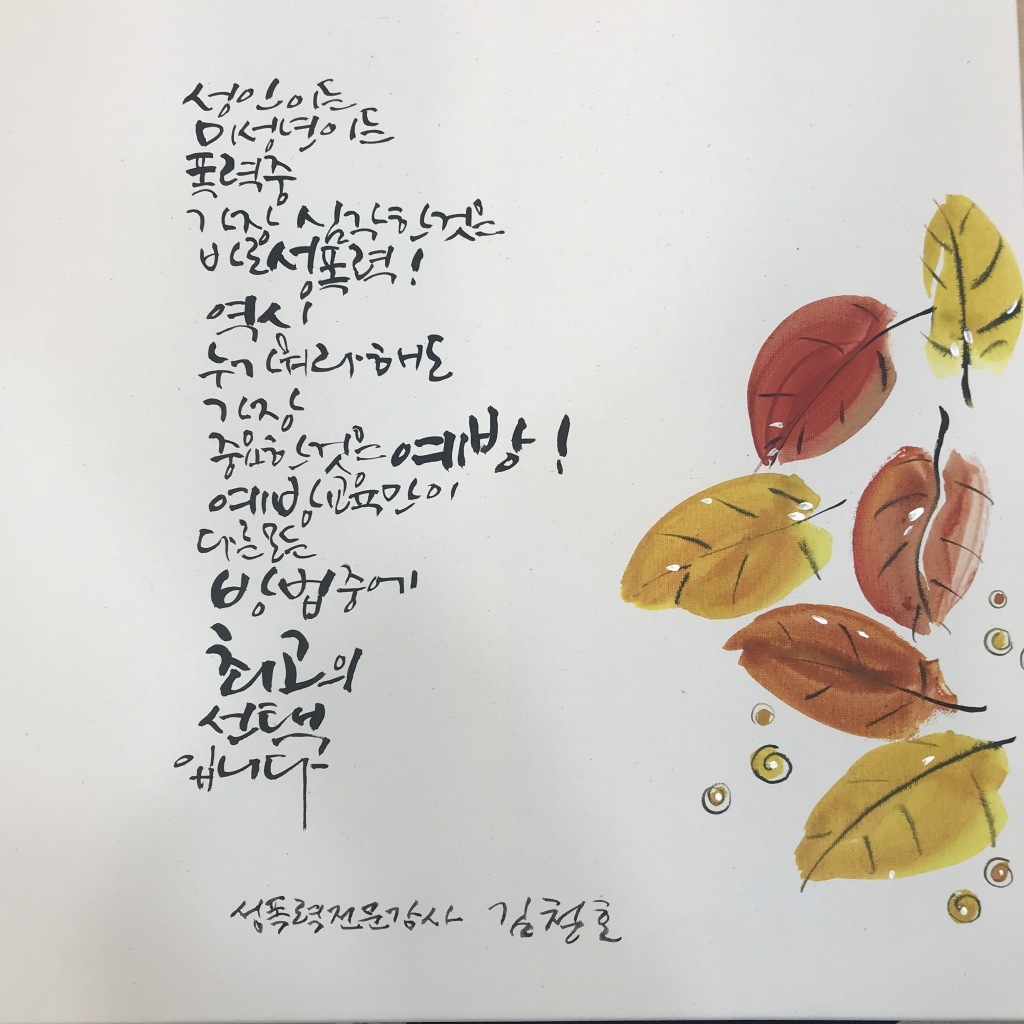 성인이든
미성년이든
폭력중
가장 심각한것은
바로성폭력!
역시
누가 뭐라해도
가장
중요한것은 예방!
예방교육만이
다른모든
방법중에
최고의
선택
입니다
성폭력전문강사 김천호